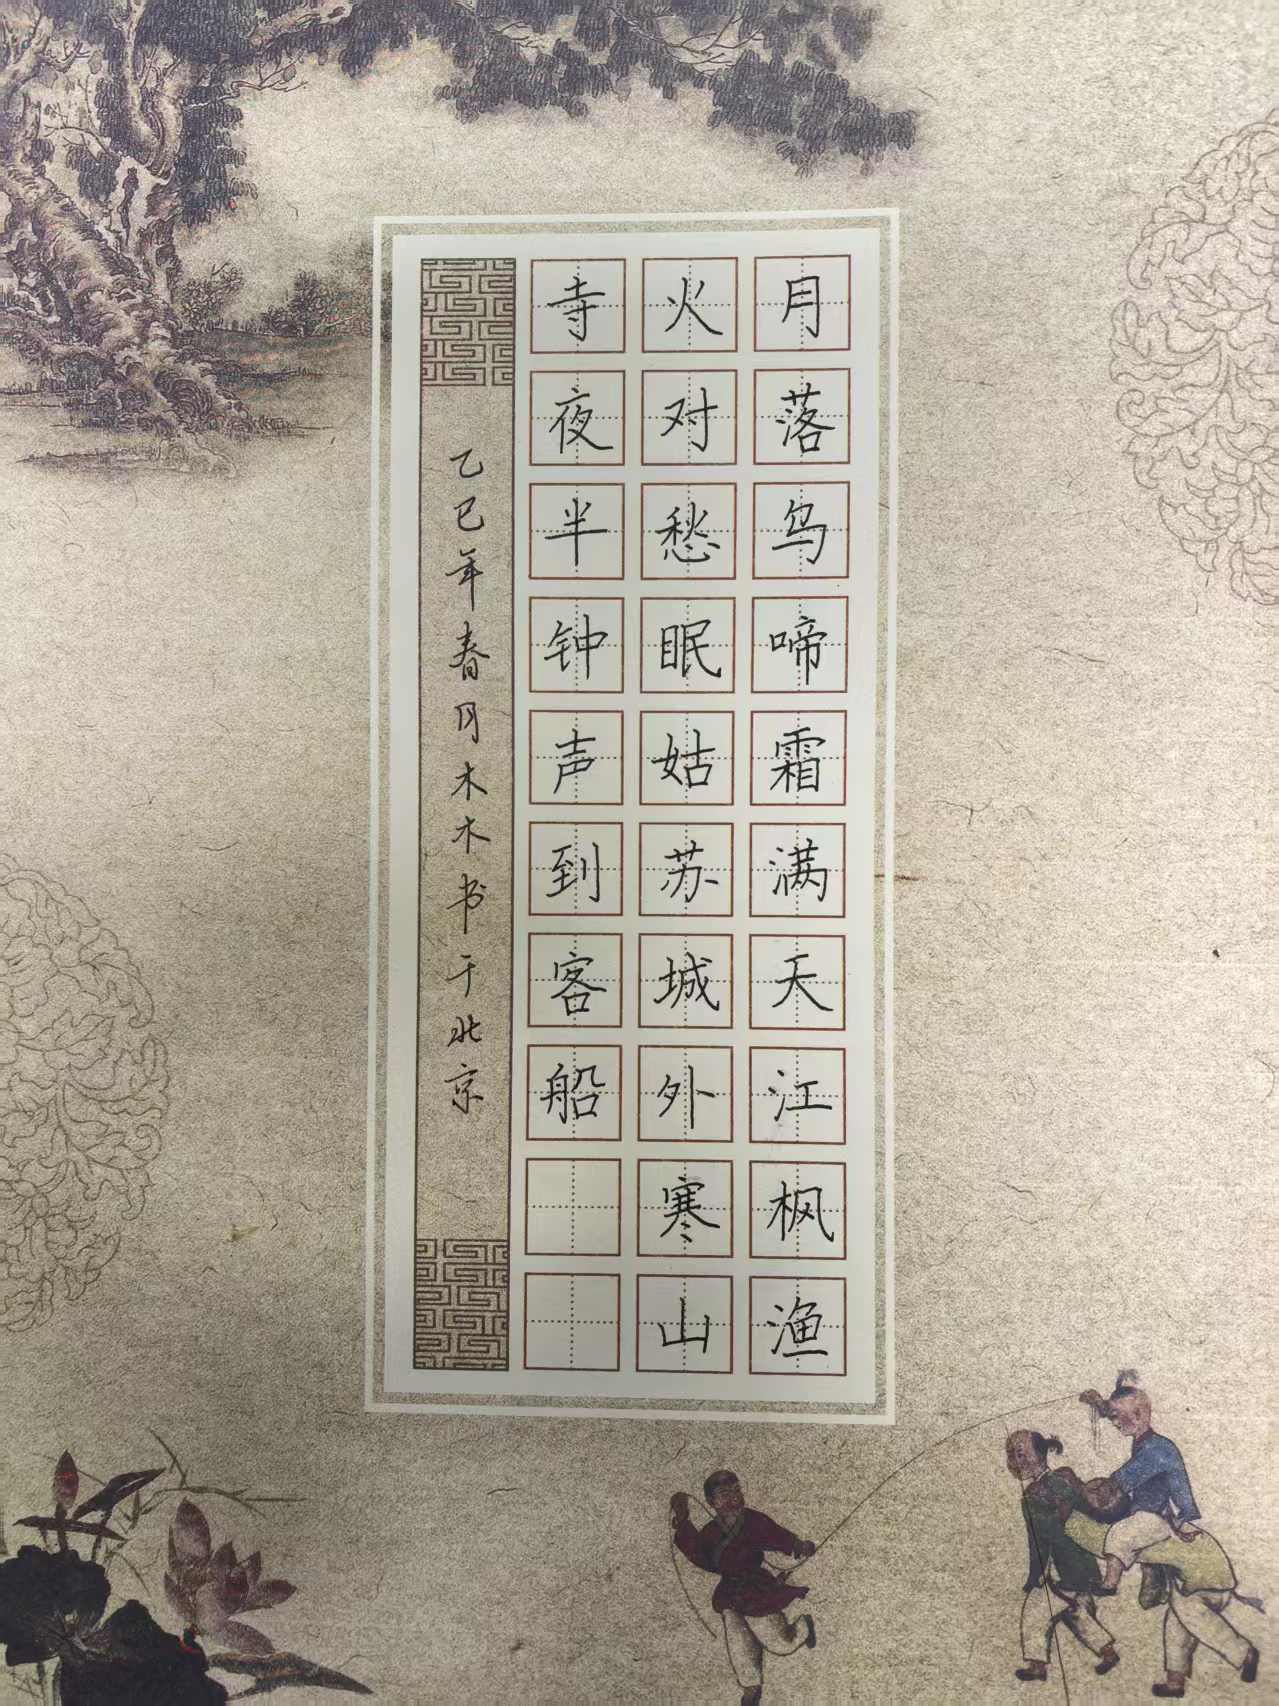 月落乌啼霜满天江枫渔
火对愁眠姑苏城外寒山
寺夜半钟声到客船
乙巳年春月木木书于北京